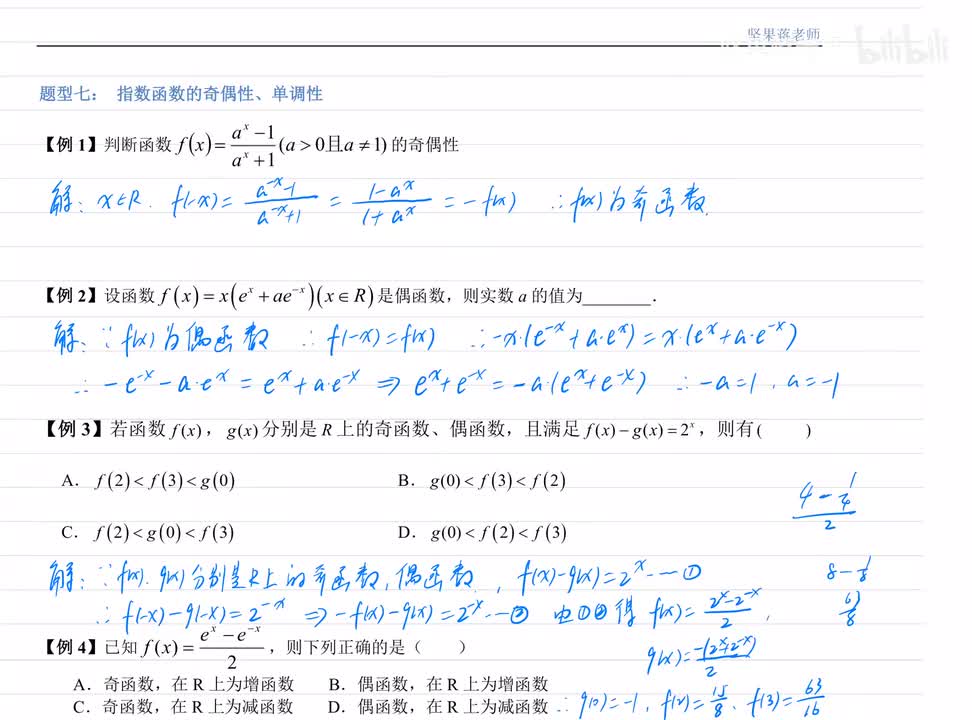 坚果蒋老师
bilibili
题型七： 指数函数的奇偶性、单调性
【例 1】判断函数 f(x)=(a^x−1)/(a^x+1)(a>0且a≠1) 的奇偶性
解：x∈R. f(-x)=(a^-x-1)/(a^-x+1)=(1-a^x)/(1+a^x)=-f(x) ∴f(x)为奇函数.
【例 2】设函数 f(x)=x(e^x+ae^−x)(x∈R)是偶函数，则实数 a 的值为________．
解：∵f(x)为偶函数 ∴f(-x)=f(x) ∴-x·(e^-x+a·e^x)=x·(e^x+a·e^-x)
∴-e^-x-a·e^x=e^x+a·e^-x ⇒ e^x+e^-x=-a·(e^x+e^-x) ∴-a=1, a=-1
【例 3】若函数 f(x)，g(x)分别是 R 上的奇函数、偶函数，且满足 f(x)−g(x)=2^x，则有(　　)
A． f(2)<f(3)<g(0) B． g(0)<f(3)<f(2)
(4-1/4)/2
C． f(2)<g(0)<f(3) D． g(0)<f(2)<f(3)
解：∵f(x).g(x)分别是R上的奇函数,偶函数, f(x)-g(x)=2^x…①
8-1/8
∴f(-x)-g(-x)=2^-x ⇒ -f(x)-g(x)=2^-x…② 由①②得 f(x)=(2^x-2^-x)/2,
63/8
g(x)=-(2^x+2^-x)/2
【例 4】已知 f(x)=(e^x−e^−x)/2，则下列正确的是（　　）
A．奇函数，在 R 上为增函数 B．偶函数，在 R 上为增函数
∴g(0)=-1, f(2)=15/8, f(3)=63/16
C．奇函数，在 R 上为减函数 D．偶函数，在 R 上为减函数